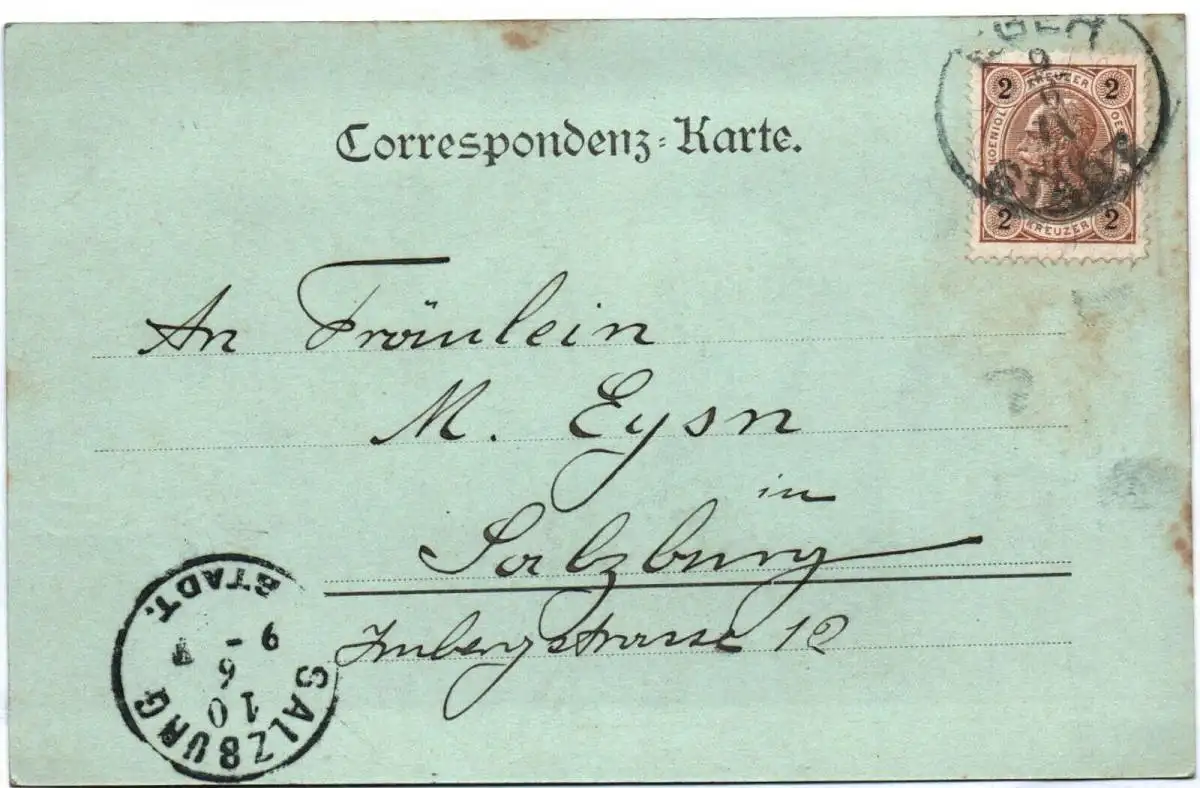 Correspondenz-Karte.
2 KREUZER 2
2 KREUZER 2
An Fräulein
M. Eysn
in
Salzburg
Imbergstrasse 12
SALZBURG STADT.
10
6
9